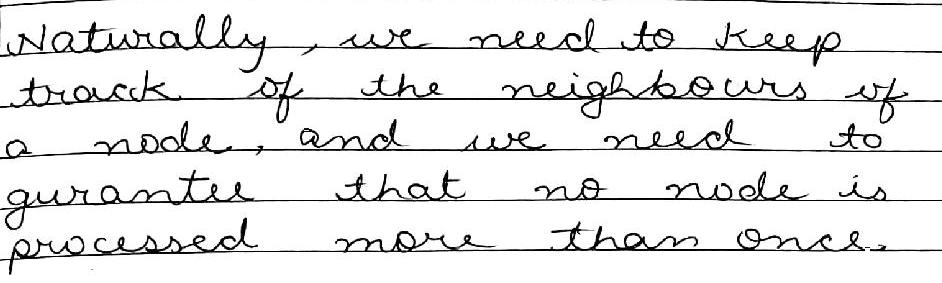 Naturally, we need to keep
track of the neighbours of
a node, and we need to
gurantee that no node is
processed more than once.